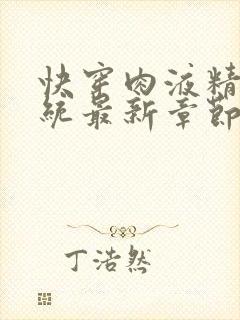 快穿肉液精
统最新章节
丁浩然